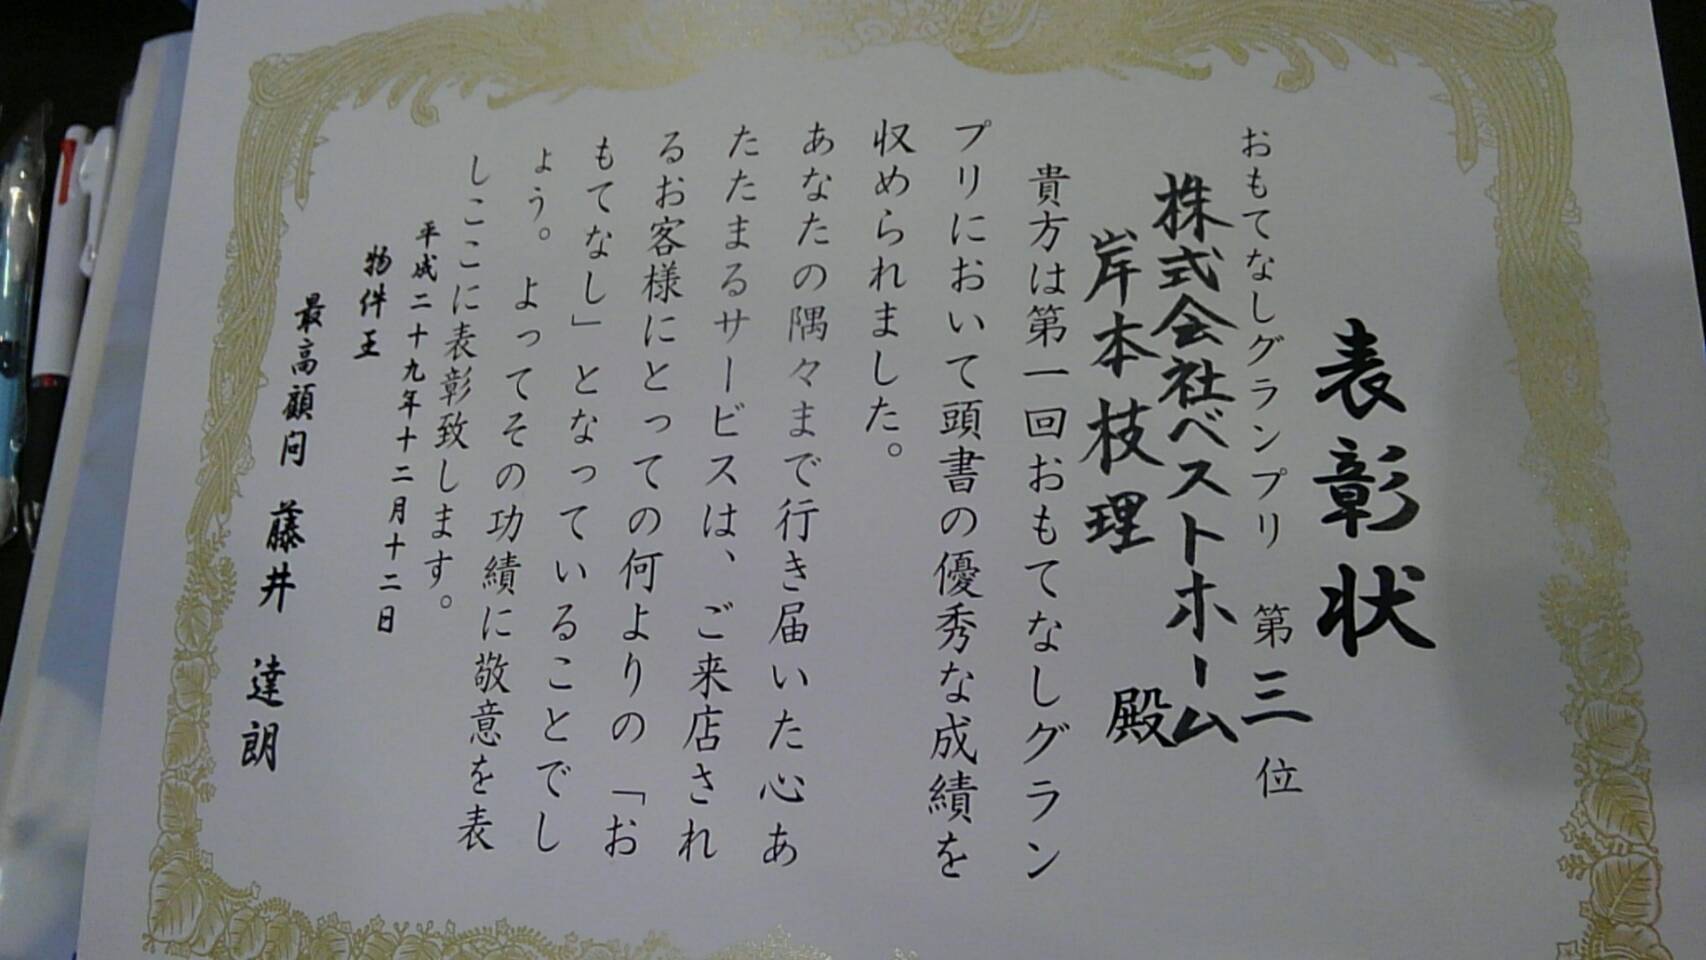 表彰状
おもてなしグランプリ 第三位
株式会社ベストホーム
岸本枝理 殿
貴方は第一回おもてなしグラン
プリにおいて頭書の優秀な成績を
収められました。
あなたの隅々まで行き届いた心あ
たたまるサービスは、ご来店され
るお客様にとっての何よりの「お
もてなし」となっていることでし
ょう。よってその功績に敬意を表
しここに表彰致します。
平成二十九年十二月十二日
物件王
最高顧問 藤井 達朗